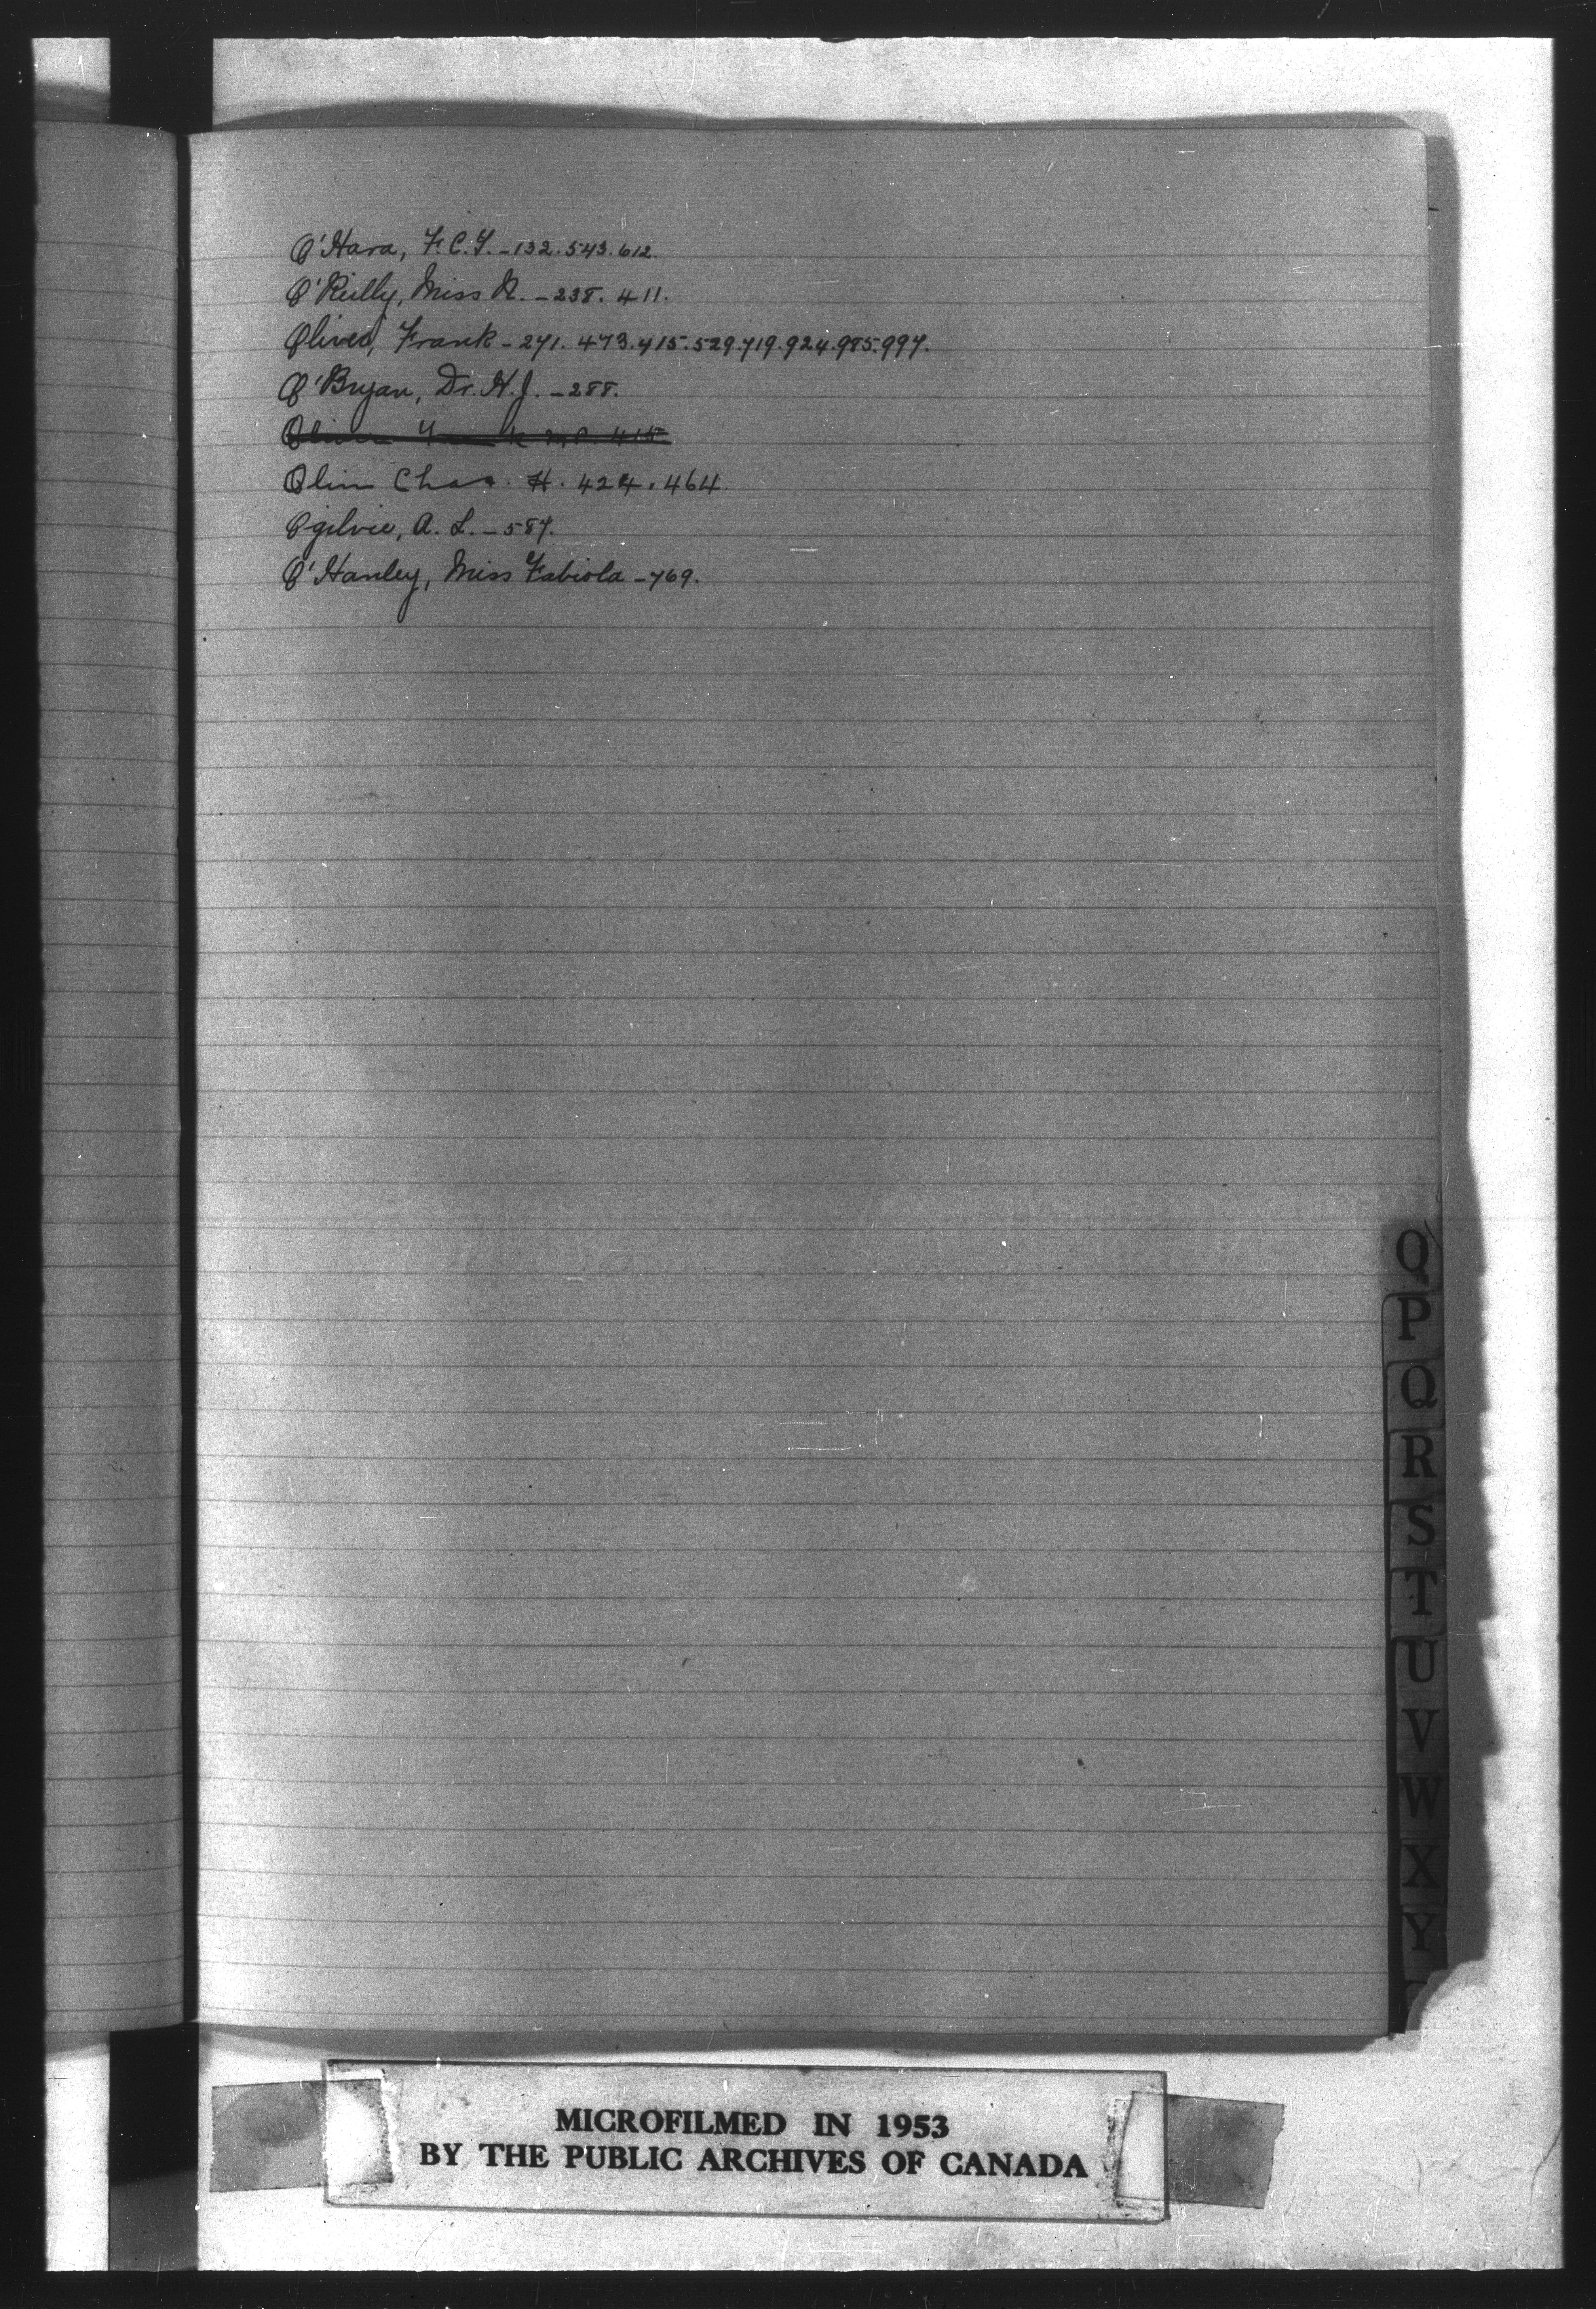 O'Hara, F.C.T. - 132. 543. 612.
O'Reilly, Miss N. - 238. 411.
Oliver, Frank - 271. 473. 415. 529. 719. 924. 985. 997.
O'Bryan, Dr. H.J. - 288.
Oliver Frank M.P. 415
Olin Chas. H. 424. 464
Ogilvie, A. L. - 587.
O'Hanley, Miss Fabiola - 769.
O
P
Q
R
S
T
U
V
W
X
Y
MICROFILMED IN 1953
BY THE PUBLIC ARCHIVES OF CANADA